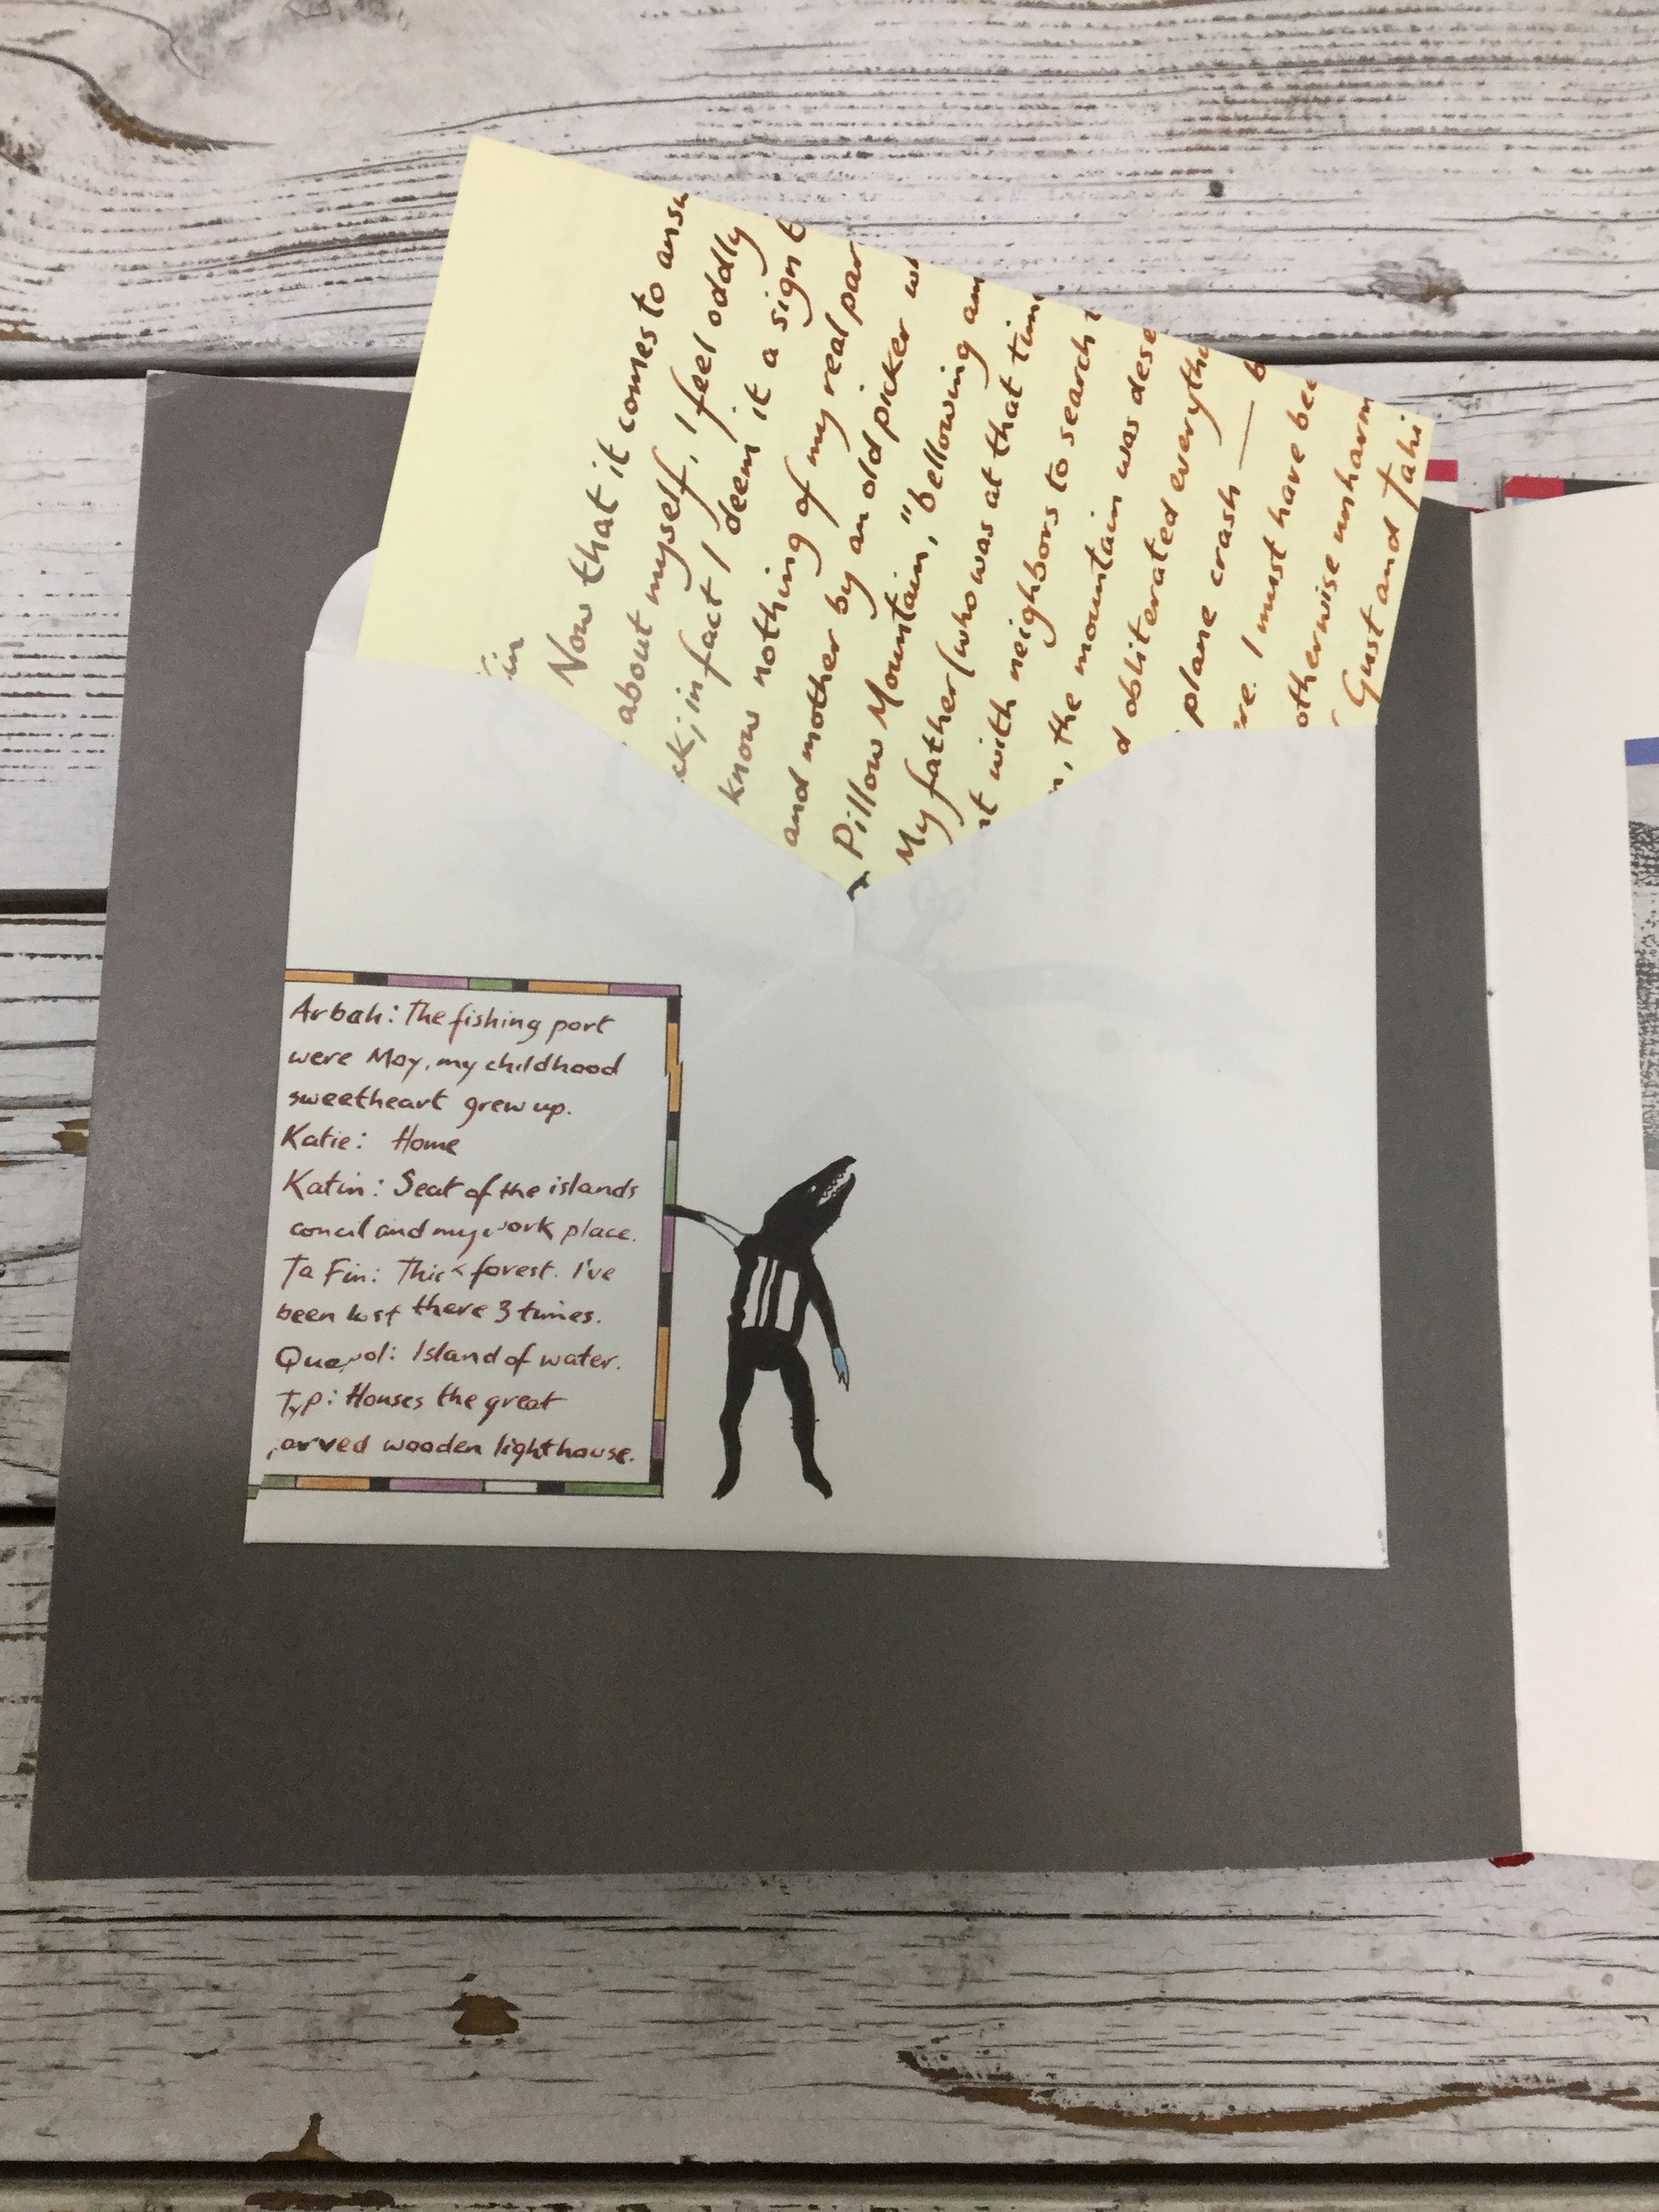 Now that it comes to
about myself, I feel oddly
in fact I deem it a sign
know nothing of my real
and mother by an old picker
Pillow Mountain, "bellowing
My father (who was at that
with neighbors to search
, the mountain was
obliterated
plane crash —
. I must have
otherwise
Gust and
Arbah: The fishing port
were May, my childhood
sweetheart grew up.
Katie: Home
Katin: Seat of the islands
concil and my work place.
Ta Fin: Thick forest. I've
been lost there 3 times.
Island of water.
Typ: Houses the great
wooden lighthouse.